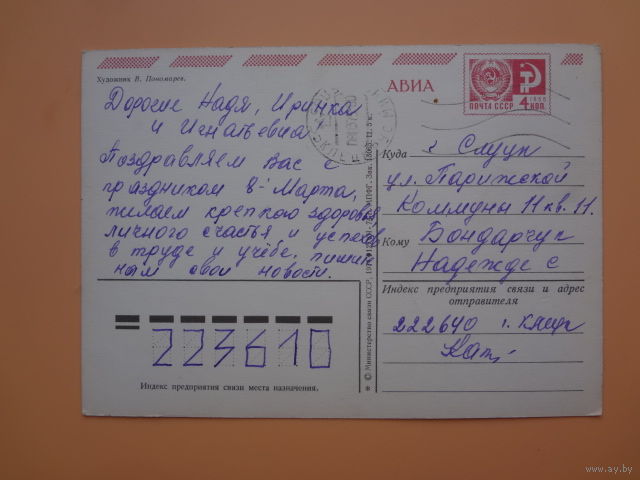 Художник В. Пономарев.
АВИА
ПОЧТА СССР
4 КОП.
1966
Дорогие Надя, Иринка
и Игнатьевна
Поздравляем Вас с
праздником 8-Марта,
желаем крепкого здоровья
личного счастья и успехов
в труде и учёбе. пишите
нам свои новости.
Куда г. Слуцк
ул. Парижской
Коммуны 11 кв. 11.
Кому Бондарчук
Надежде С
Индекс предприятия связи и адрес
отправителя
222640 г. Клецк
223610
Индекс предприятия связи места назначения.
© Министерство связи СССР,
www.ay.by